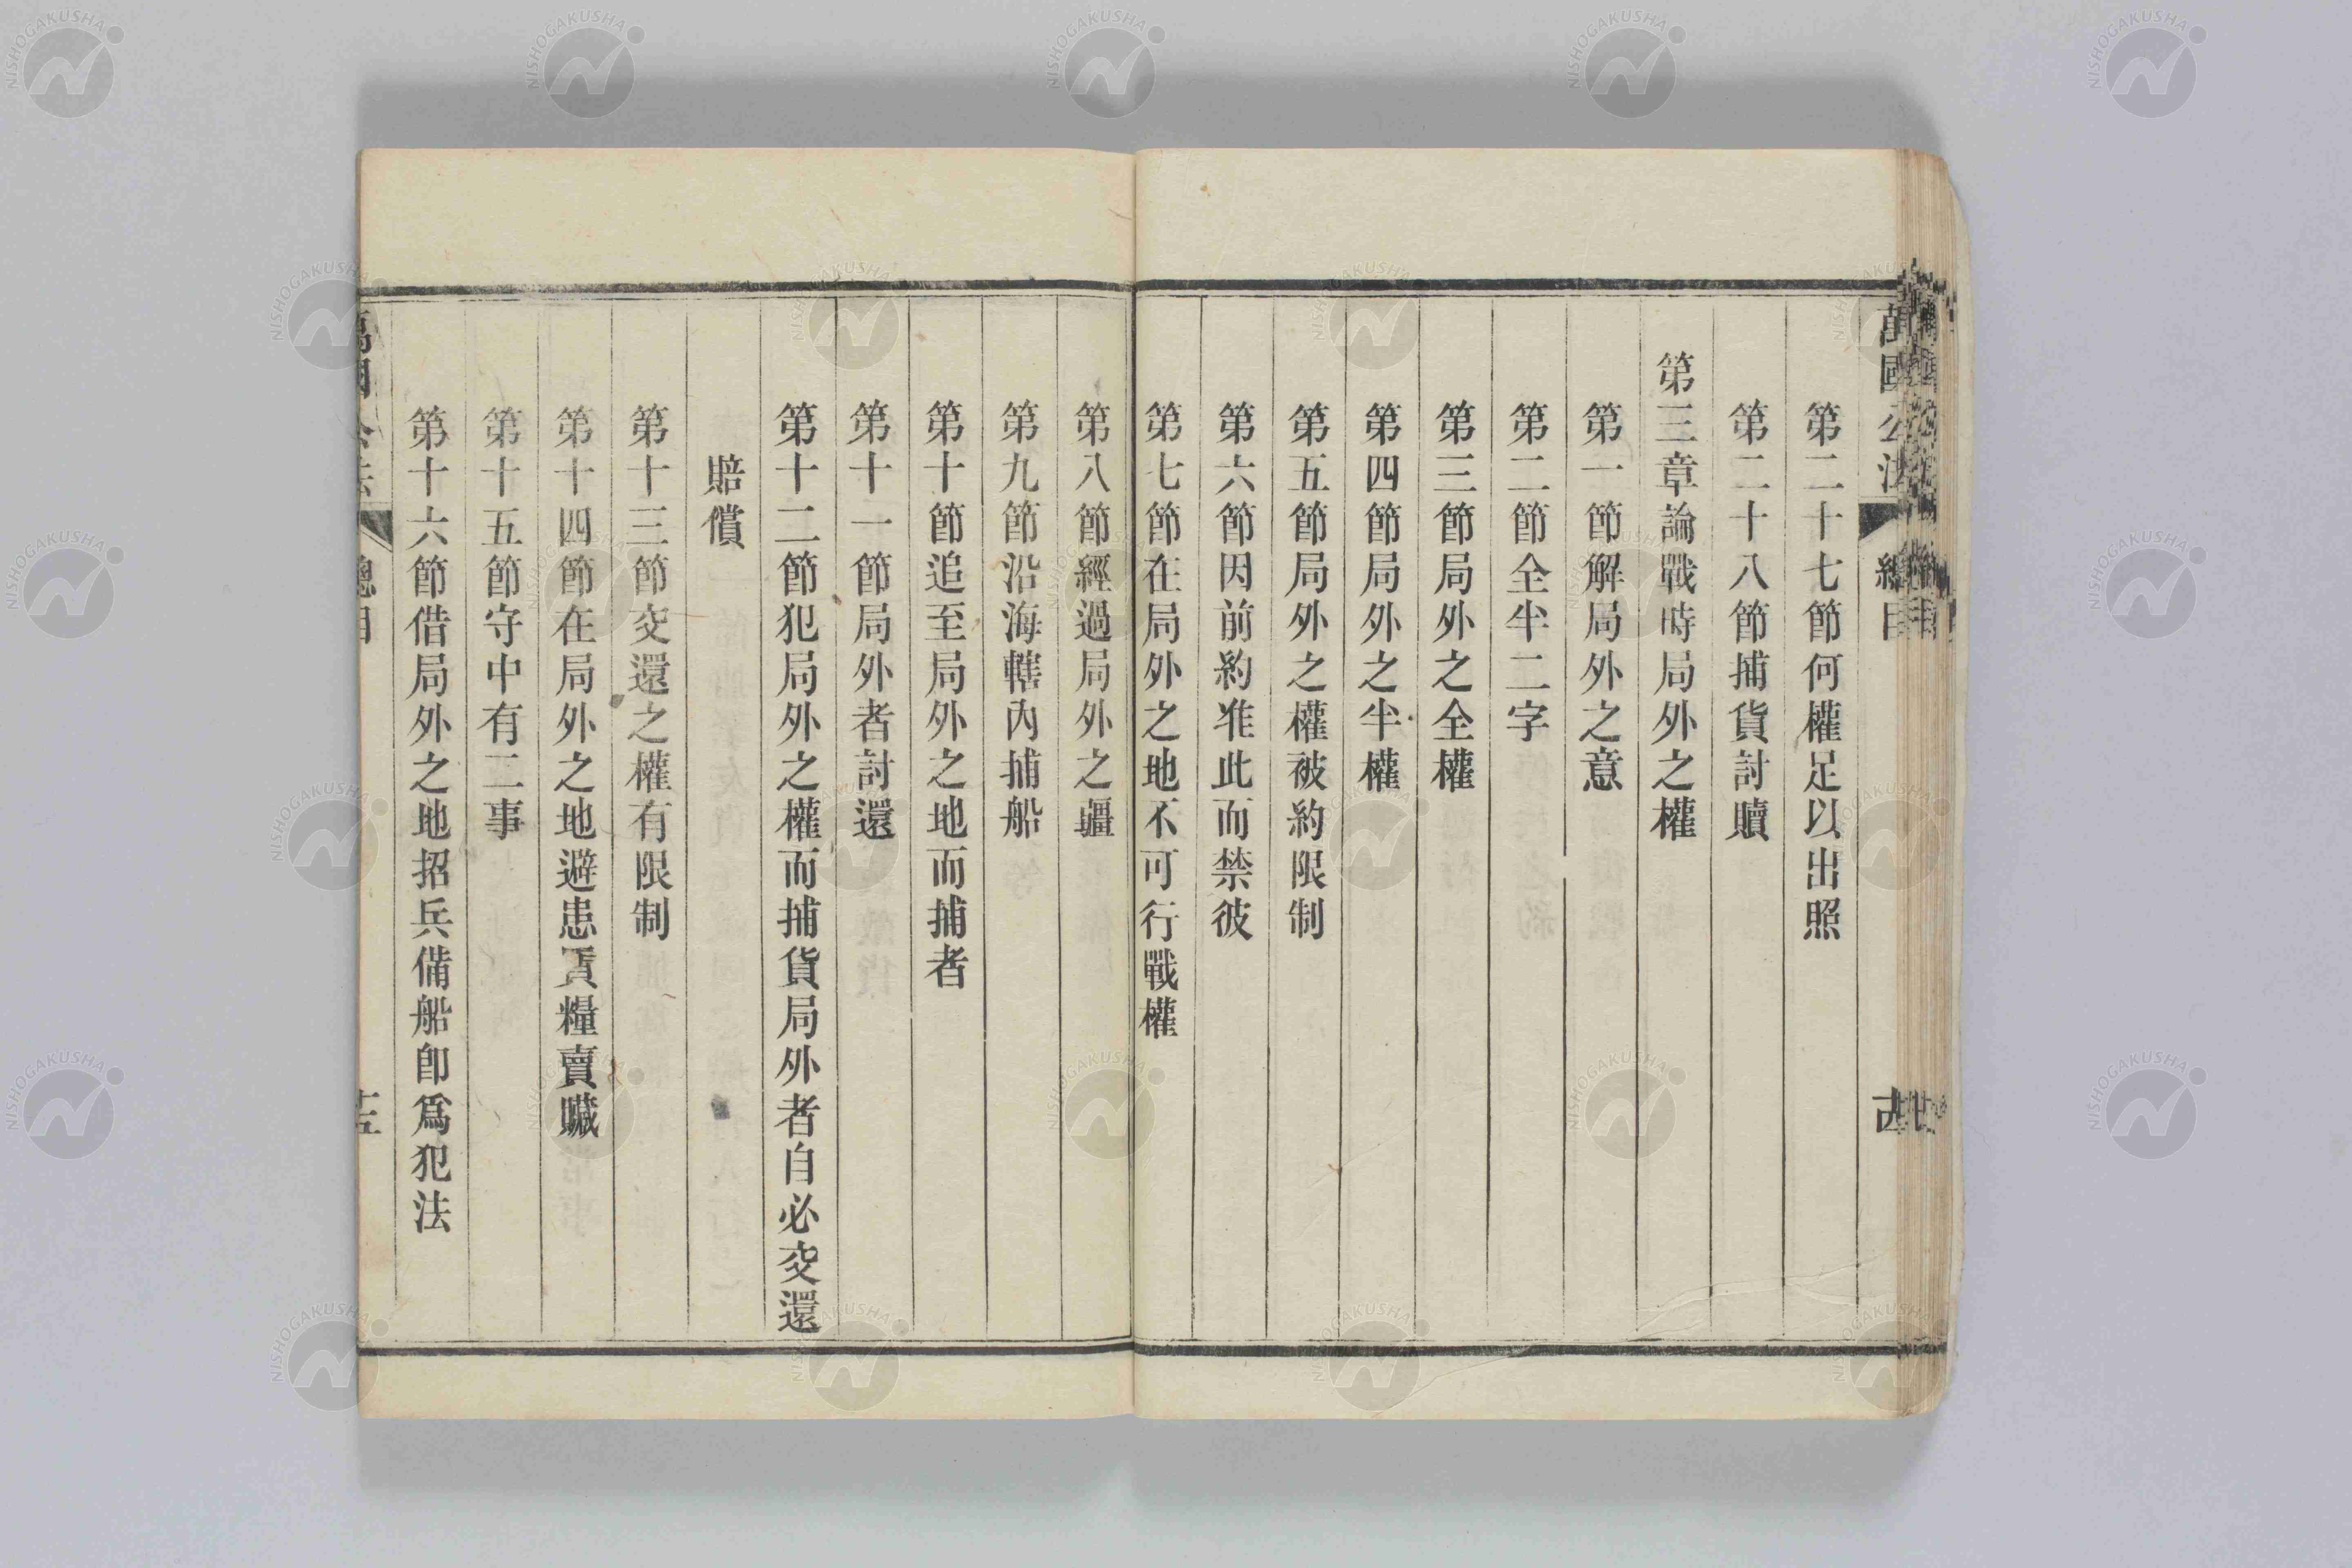 萬國公法 總目
第二十七節何權足以出照
第二十八節捕貨討贖
第三章論戰時局外之權
第一節解局外之意
第二節全半二字
第三節局外之全權
第四節局外之半權
第五節局外之權被約限制
第六節因前約准此而禁彼
第七節在局外之地不可行戰權
第八節經過局外之疆
第九節沿海轄內捕船
第十節追至局外之地而捕者
第十一節局外者討還
第十二節犯局外之權而捕貨局外者自必交還
賠償
第十三節交還之權有限制
第十四節在局外之地避患買糧賣贓
第十五節守中有二事
第十六節借局外之地招兵備船卽爲犯法
萬國公法 總目
NISHOGAKUSHA